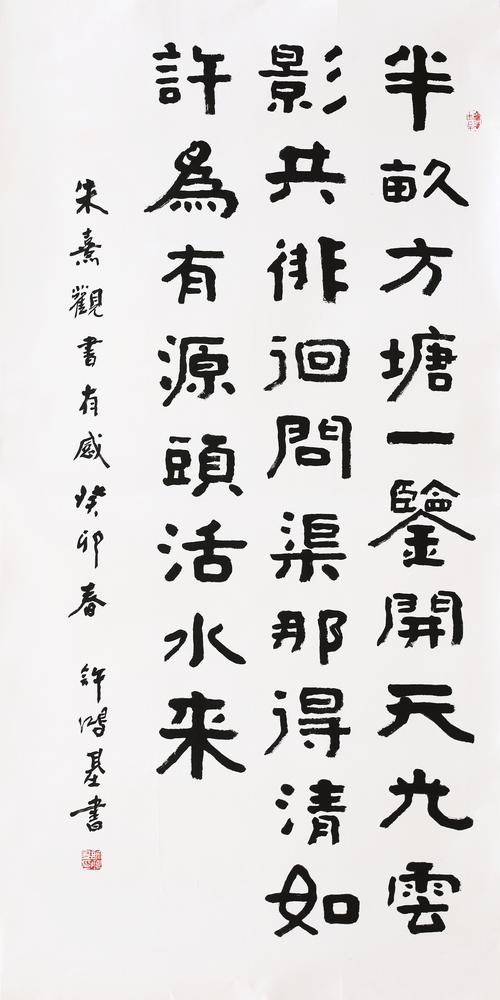 半畝方塘一鑒開天光雲
影共徘徊問渠那得清如
許為有源頭活水来
朱熹觀書有感癸卯春 許鴻基書